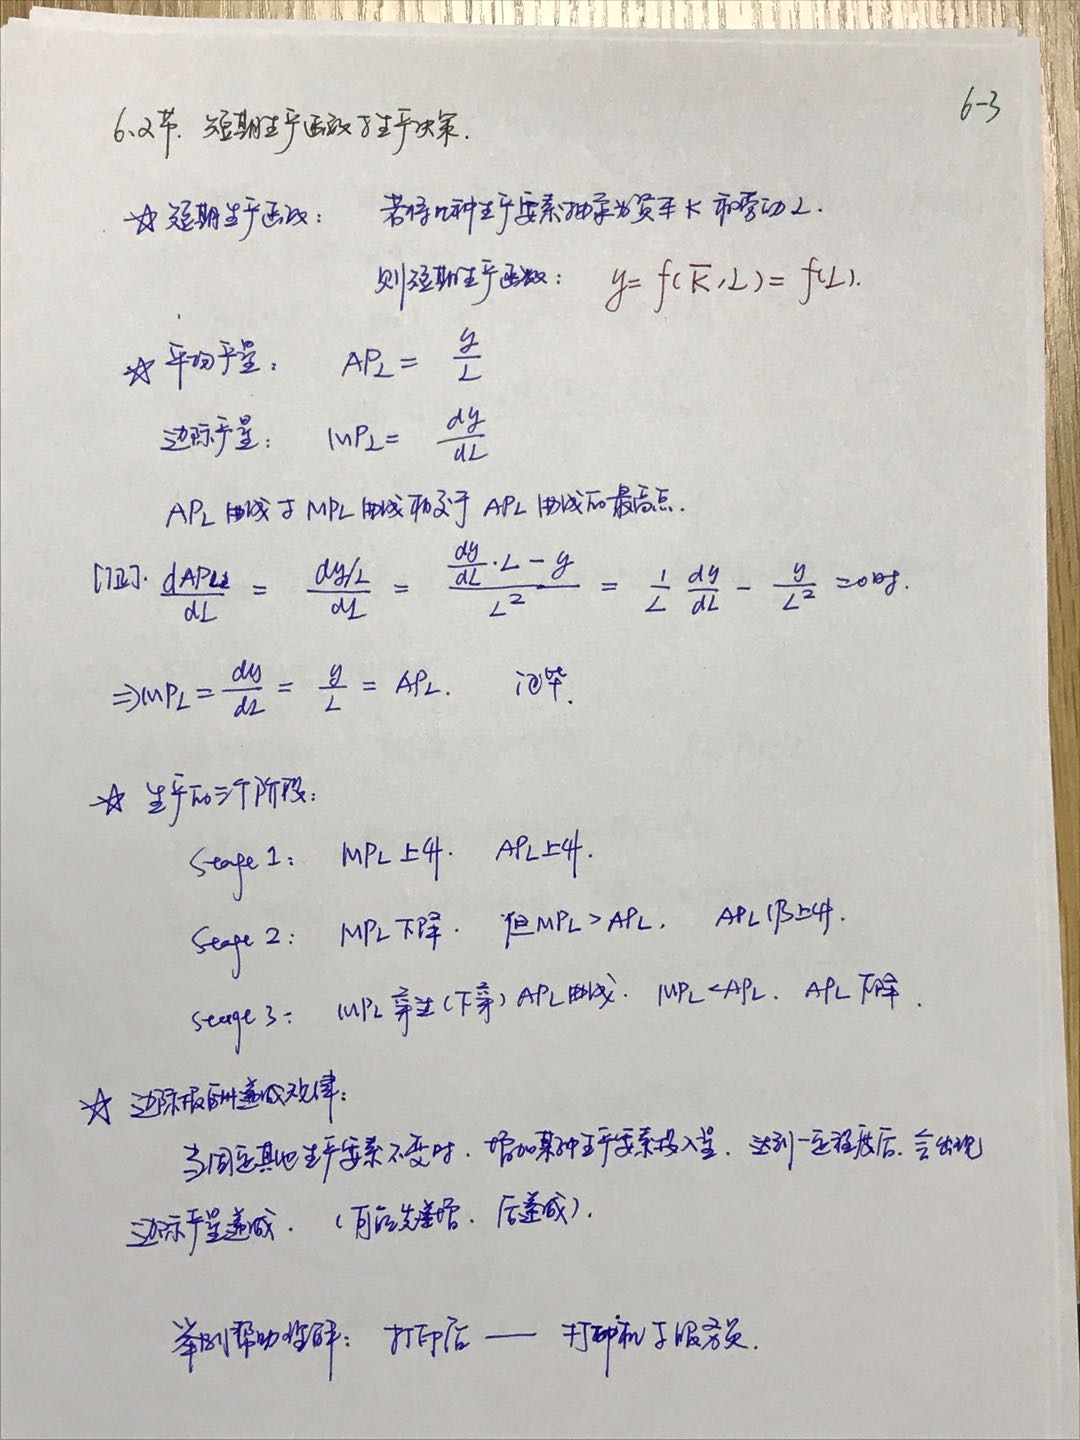 6-3
6.2节. 短期生产函数与生产决策.
☆ 短期生产函数: 若将几种生产要素抽象为资本K和劳动L.
则短期生产函数: y= f(K̅,L)= f(L).
☆ 平均产量: APL= y/L
边际产量: MPL= dy/dL
APL曲线与MPL曲线相交于APL曲线的最高点.
[证]. dAPL/dL = dy/L/dL = (dy/dL·L-y)/L² = 1/L dy/dL - y/L² =0时.
⇒MPL= dy/dL = y/L = APL. 证毕.
☆ 生产的三个阶段:
Stage 1: MPL上升. APL上升.
Stage 2: MPL下降. 但MPL>APL, APL仍上升.
Stage 3: MPL穿过(下穿)APL曲线. MPL<APL. APL下降.
☆ 边际报酬递减规律:
当固定其他生产要素不变时, 增加某种生产要素投入量, 达到一定程度后, 会出现
边际产量递减. (可能先递增, 后递减).
举例帮助理解: 打印店 —— 打印机与服务员.